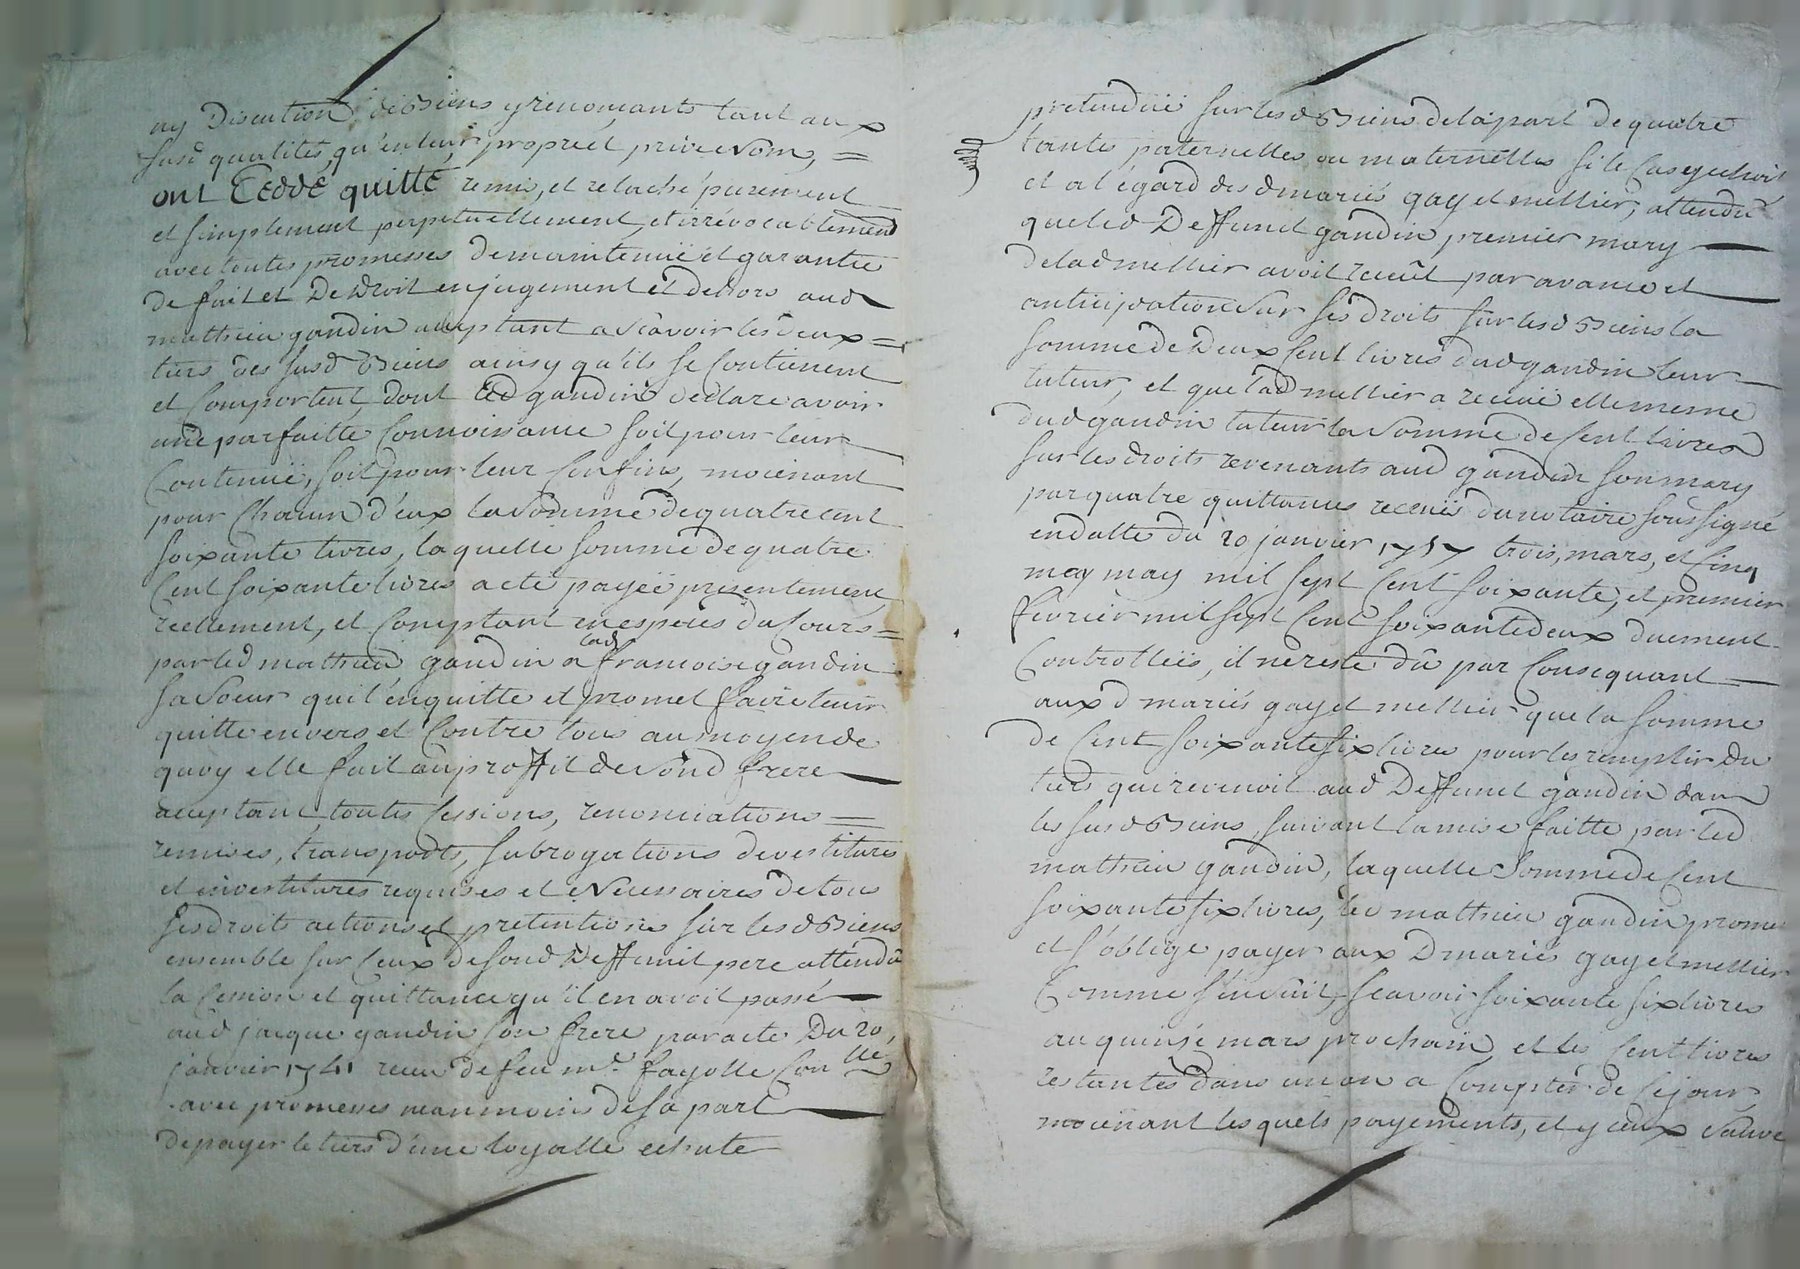 ny Discution de Biens y renonçants tant aux
susd qualités, qu'en leur propre et privé nom, =
ont Ceddé quitté remis, et relaché purement
et simplement perpetuellement, et irrevocablement
avec toutes promesses de maintenüe et garantie
de fait et De droit en jugement et dehors aud
mathieu gandin acceptant a scavoir les deux =
tiers des susd Biens ainsy qu'ils se Contienent
et Comportent, dont led gandin declare avoir
une parfaitte Connoissance soit pour leur
Contenüe, soit pour leur Confins, moienant
pour Chacun d'eux la somme de quatre cent
soixante livres, laquelle somme de quatre
Cent soixante livres a eté payée presentement
réellement, et Comptant en especes du Cours =
par led mathieu gandin a lad francoise gandin
sa soeur qui l'en quitte et promet faire tenir
quitte envers et Contre tous au moyen de
quoy elle fait au proffit de sond frere
acceptant, toutes Cessions, renonciations =
remises, transports, subrogations devestitures
et investitures requises et Necessaires de tous
ses droits actions et pretentions sur lesd Biens
ensemble sur Ceux de sond Deffunt pere attendu
la Cession et quittance qu'il en avoit passé
aud jacque gandin son frere par acte Du 20,
janvier 1741 receu de feu me. fayolle Con lle
avec promesses neanmoins de sa part
de payer le tiers d'une loyalle echute
pretendüe sur lesd Biens de la part de quatre
tantes paternelles ou maternelles si le Cas y echoit
et a l'égard desd mariés gay et mellier, attendu
que led Deffunct gandin, premier mary
de lad mellier avoit receüt par avance et
anticipation sur ses droits sur lesd Biens la
somme de Deux Cent livres dud gandin leur
tuteur, et que lad mellier a recüe elle meme
dud gandin tuteur la somme de Cent livres
sur les droits revenants aud gandin son mary
par quatre quittances receües du notaire soussigné
en datte du 20 janvier 1757 trois, mars, et Cinq
may may mil sept Cent soixante, et premier
fevrier mil sept Cent soixante deux duement
Controllées, il ne reste dû par Consequant
auxd mariés gay et mellier que la somme
de Cent soixante six livres pour les remplir du
tiers qui revenoit aud Deffunct gandin dans
les susd Biens, suivant la mise faitte par led
mathieu gandin, laquelle somme de Cent
soixante six livres, led mathieu gandin promet
et s'oblige payer aux D mariés gay et mellier
Comme s'ensuit, scavoir soixante six livres
au quinsé mars prochain, et les Cent livres
restantes dans un an a Compter de Ce jour
moïenant lesquels payements, et y ceux